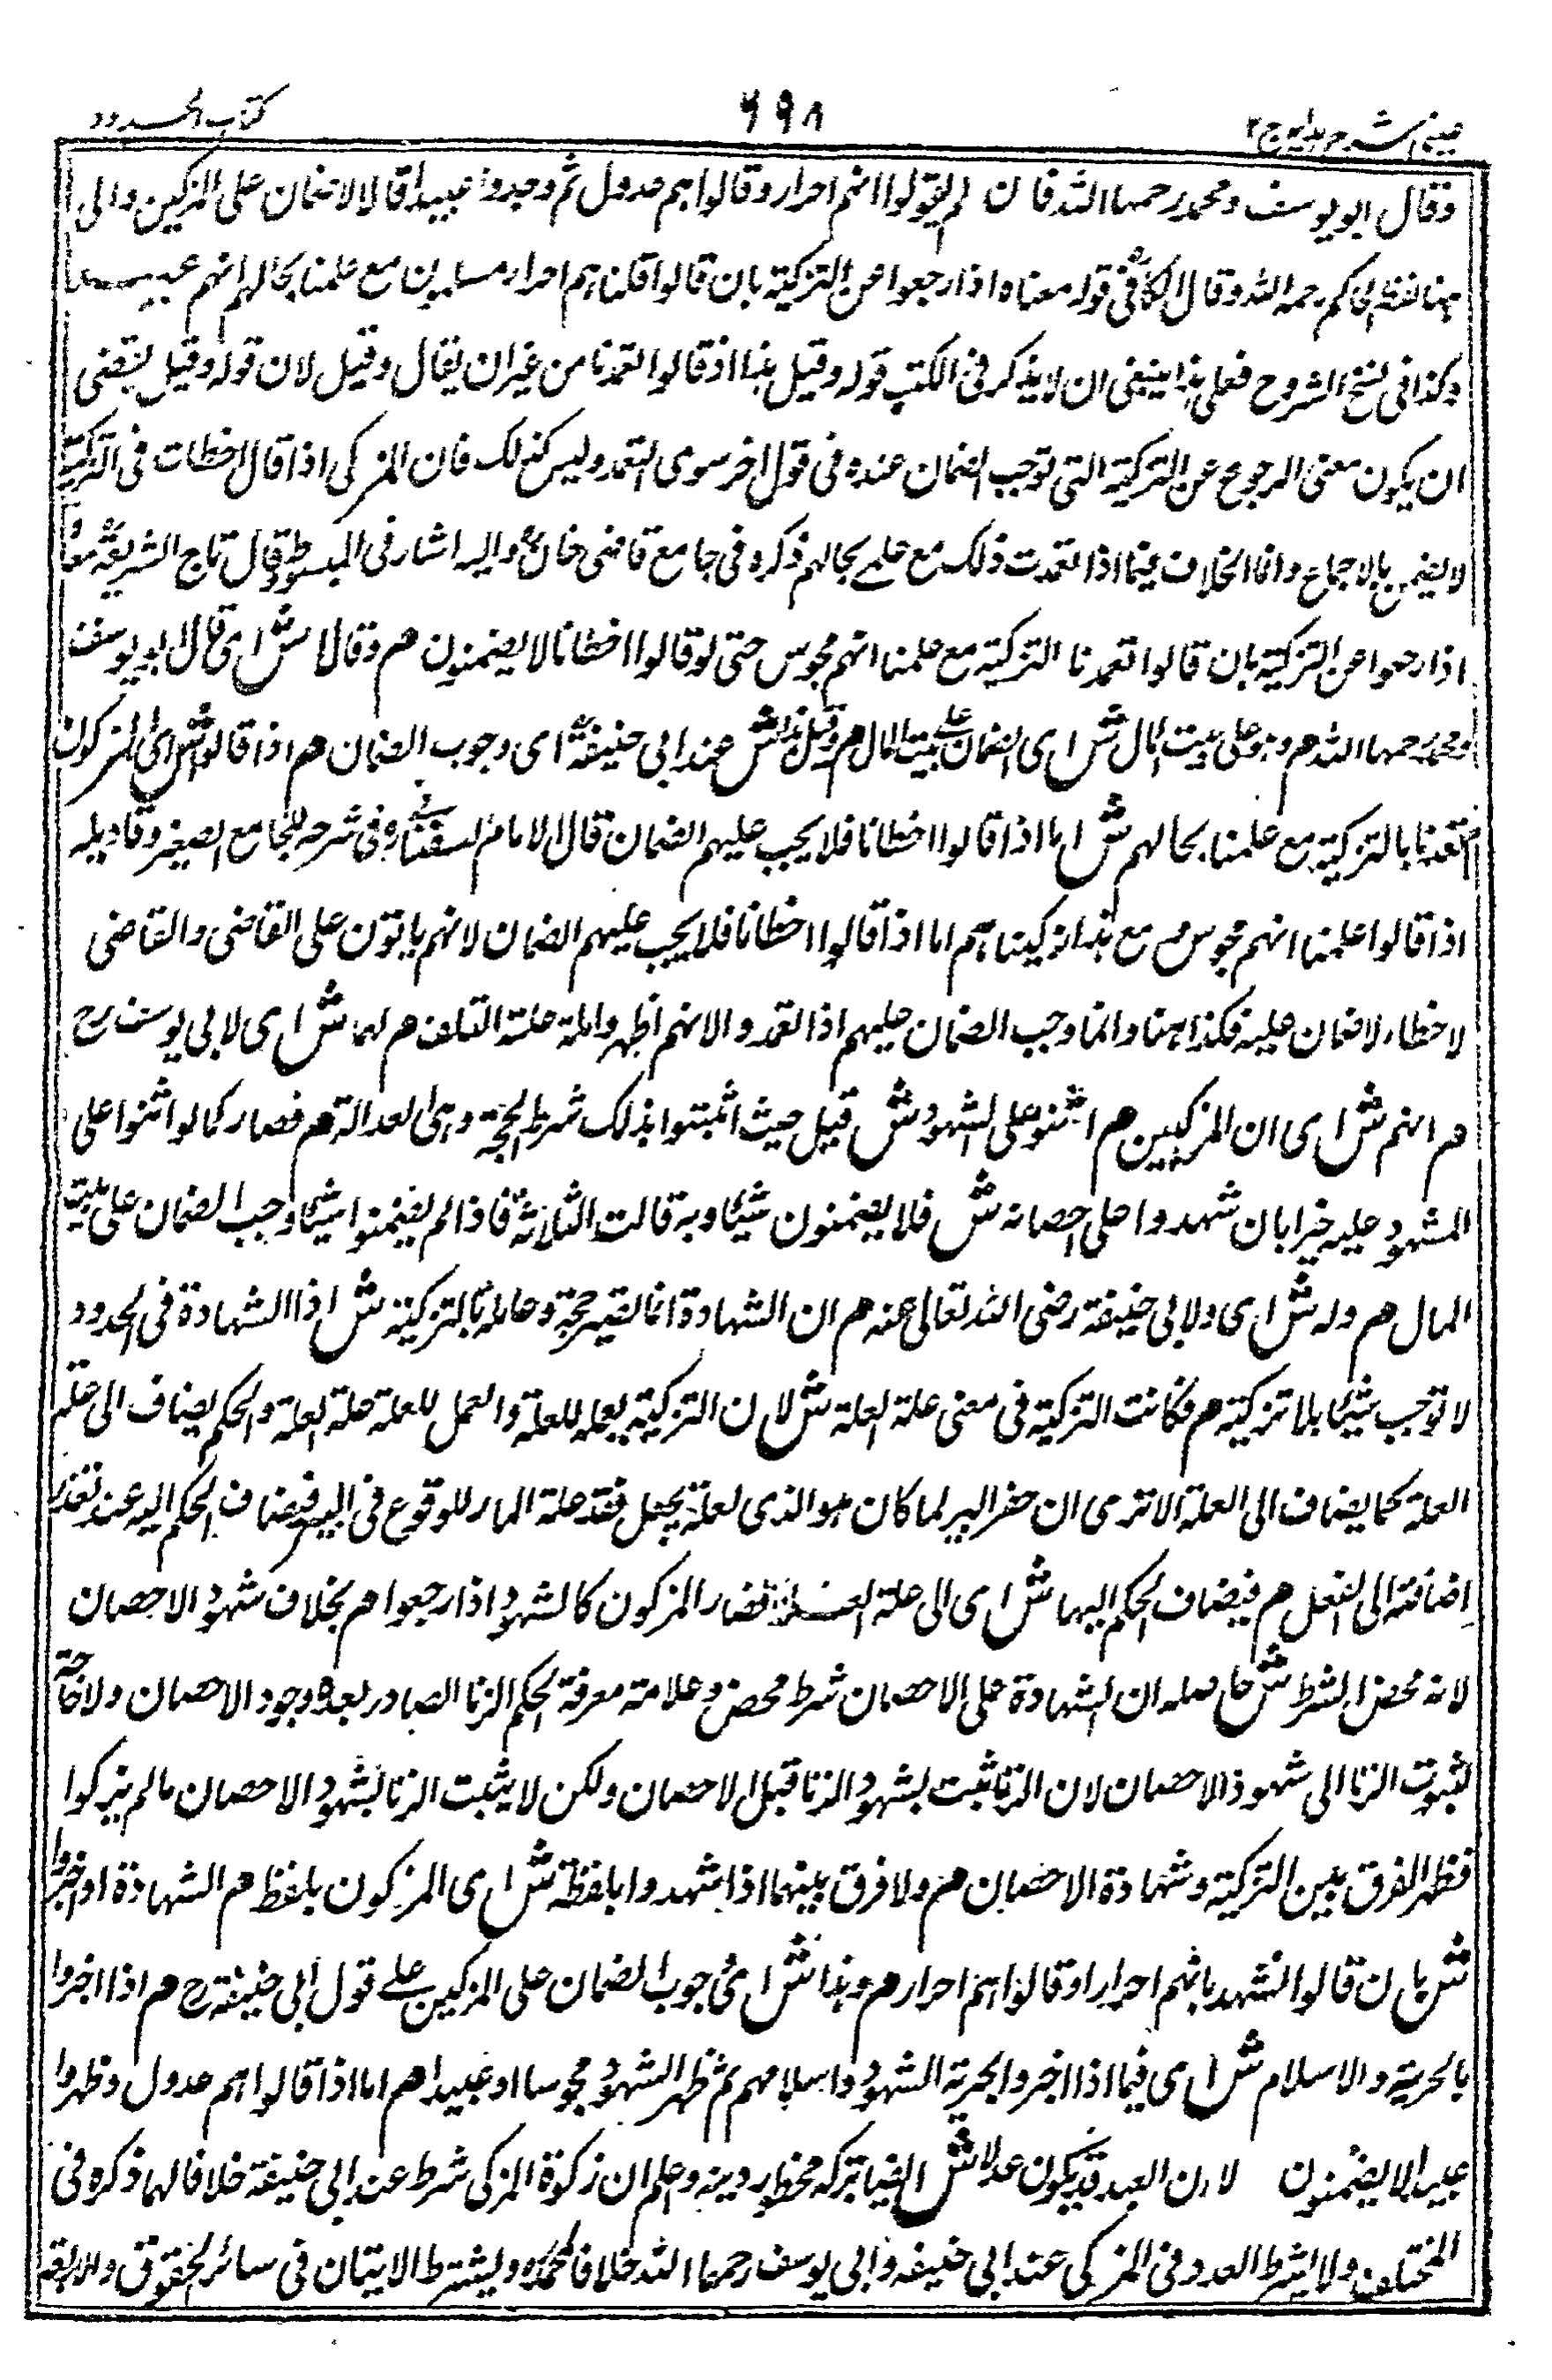 عینی شرح ہدایہ ج ۲
۶۹۸
کتاب الحدود
وقال ابو یوسف ومحمد رحمهما الله فان لم یقولوا انهم احرار وقالوا هم عدول ثم وجدوا عبیدا قالا لا ضمان علی المزکین والی
هنا لفظ الحاکم رحمه الله وقال الکاکی فی قوله معناه اذا رجعوا عن التزکیة بان قالوا قلنا هم احرار مسلمون مع علمنا بحالهم انهم عبید
وکذا فی نسخ الشروح فعلی هذا ینبغی ان لا یذکر فی الکتب قوله وقیل هذا اذ قالوا تعمدنا من غیر ان یقال وقیل لان قوله وقیل یقتضی
ان یکون معنی الرجوع عن التزکیة التی توجب الضمان عنده فی قول اخر سوی التعمد ولیس کذلک فان المزکی اذا قال اخطات فی التزکیة
لا یضمن بالاجماع وانما الخلاف فیما اذا تعمدت ذلک مع علمی بحالهم ذکره فی جامع قاضی خان والیه اشار فی المبسوط وقال تاج الشریعة معناه
اذا رجعوا عن التزکیة بان قالوا تعمدنا التزکیة مع علمنا انهم مجوس حتی لو قالوا اخطانا لا یضمنون م وقالا ش ای قال ابو یوسف
ومحمد رحمهما الله م هو علی بیت المال ش ای الضمان علی بیت المال م وقیل هذا ش عند ابی حنیفة ای وجوب الضمان م اذا قالوا ش ای المزکون
م تعمدنا بالتزکیة مع علمنا بحالهم ش اما اذا قالوا اخطانا فلا یجب علیهم الضمان قال الامام السفناقی فی شرحه للجامع الصغیر وتاویله
اذا قالوا علمنا انهم مجوس م مع هذا زکیناهم اما اذا قالوا اخطانا فلا یجب علیهم الضمان لانهم یاتون علی القاضی والقاضی
لا خطاء لا ضمان علیه فکذا هنا وانما وجب الضمان علیهم اذا تعمدوا لانهم اظهروا علة علة التلف م لهما ش ای لابی یوسف رح
م انهم ش ای ان المزکیین م اثنوا علی الشهود ش قیل حیث اثبتوا بذلک شرط الحجة وهی العدالة م فصار کما لو اثنوا علی
المشهود علیه خیرا بان شهدوا علی احصانه ش فلا یضمنون شیئا وبه قالت الثلاثة فاذا لم یضمنوا شیئا وجب الضمان علی بیت
المال م وله ش ای ولابی حنیفة رضی الله تعالی عنه م ان الشهادة انما تصیر حجة وعاملة بالتزکیة ش اذا الشهادة فی الحدود
لا توجب شیئا بلا تزکیة م فکانت التزکیة فی معنی علة العلة ش لان التزکیة یعمل للعلة والعمل للعلة علة العلة والحکم یضاف الی علة
العلة کما یضاف الی العلة الا تری ان حفر البیر لما کان هو الذی لعلة یجعل فقد علة المار للوقوع فی البیر فیضاف الحکم الیه عند تعذر
اضافته الی الفعل م فیضاف الحکم الیها ش ای الی علة العلة فصار المزکون کالشهود اذا رجعوا م بخلاف شهود الاحصان
لانه محض الشرط ش حاصله ان الشهادة علی الاحصان شرط محض وعلامة معرفة لحکم الزنا الصادر بعد وجود الاحصان ولا حاجة
لثبوت الزنا الی شهود الاحصان لان الزنا ثبت بشهود الزنا قبل الاحصان ولکن لا یثبت الزنا بشهود الاحصان مالم یزکوا
فظهر الفرق بین التزکیة وشهادة الاحصان م ولا فرق بینهما اذا شهدوا بلفظة ش ای المزکون بلفظ م الشهادة او اخبروا
ش بان قالوا نشهد بانهم احرار او قالوا هم احرار م وهذا ش ای وجوب الضمان علی المزکین علی قول ابی حنیفة رح م اذا اخبروا
بالحریة والاسلام ش ای فیما اذا اخبروا بحریة الشهود واسلامهم ثم ظهر الشهود مجوسا او عبیدا م اما اذا قالوا هم عدول وظهروا
عبیدا لا یضمنون لان العبد قد یکون عدلا ش ایضا بترکه محظور دینه واعلم ان زکوة المزکی شرط عند ابی حنیفة خلافا لهما ذکره فی
المختلف ولا یشترط العدد فی المزکی عند ابی حنیفه وابی یوسف رحمهما الله خلافا لمحمد ویشترط الاثنان فی سائر الحقوق والاربعة